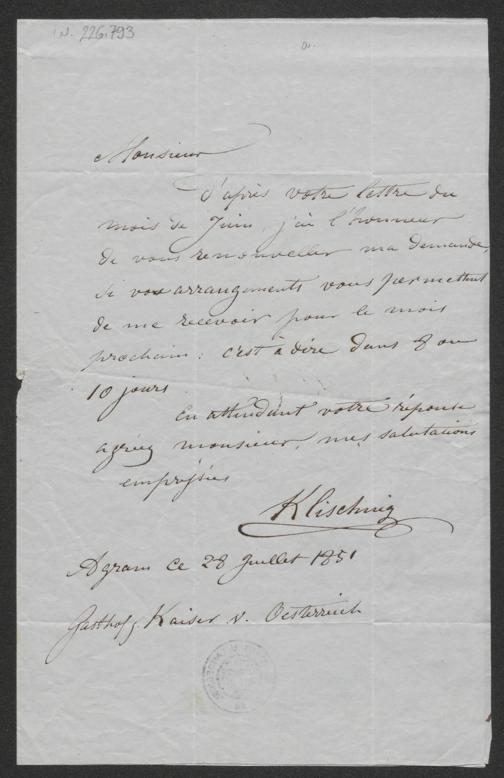 N. 226.793
Monsieur
D'après votre lettre du
mois de Juin, j'ai l'honneur
de vous renouveller ma demande,
si vos arrangements vous permettent
de me recevoir pour le mois
prochain: c'est à dire dans 8 ou
10 jours
En attendant votre réponse
agréez monsieur, mes salutations
empressées
Klischnig
Agram ce 28 Juillet 1851
Gasthof z. Kaiser v. Oesterreich